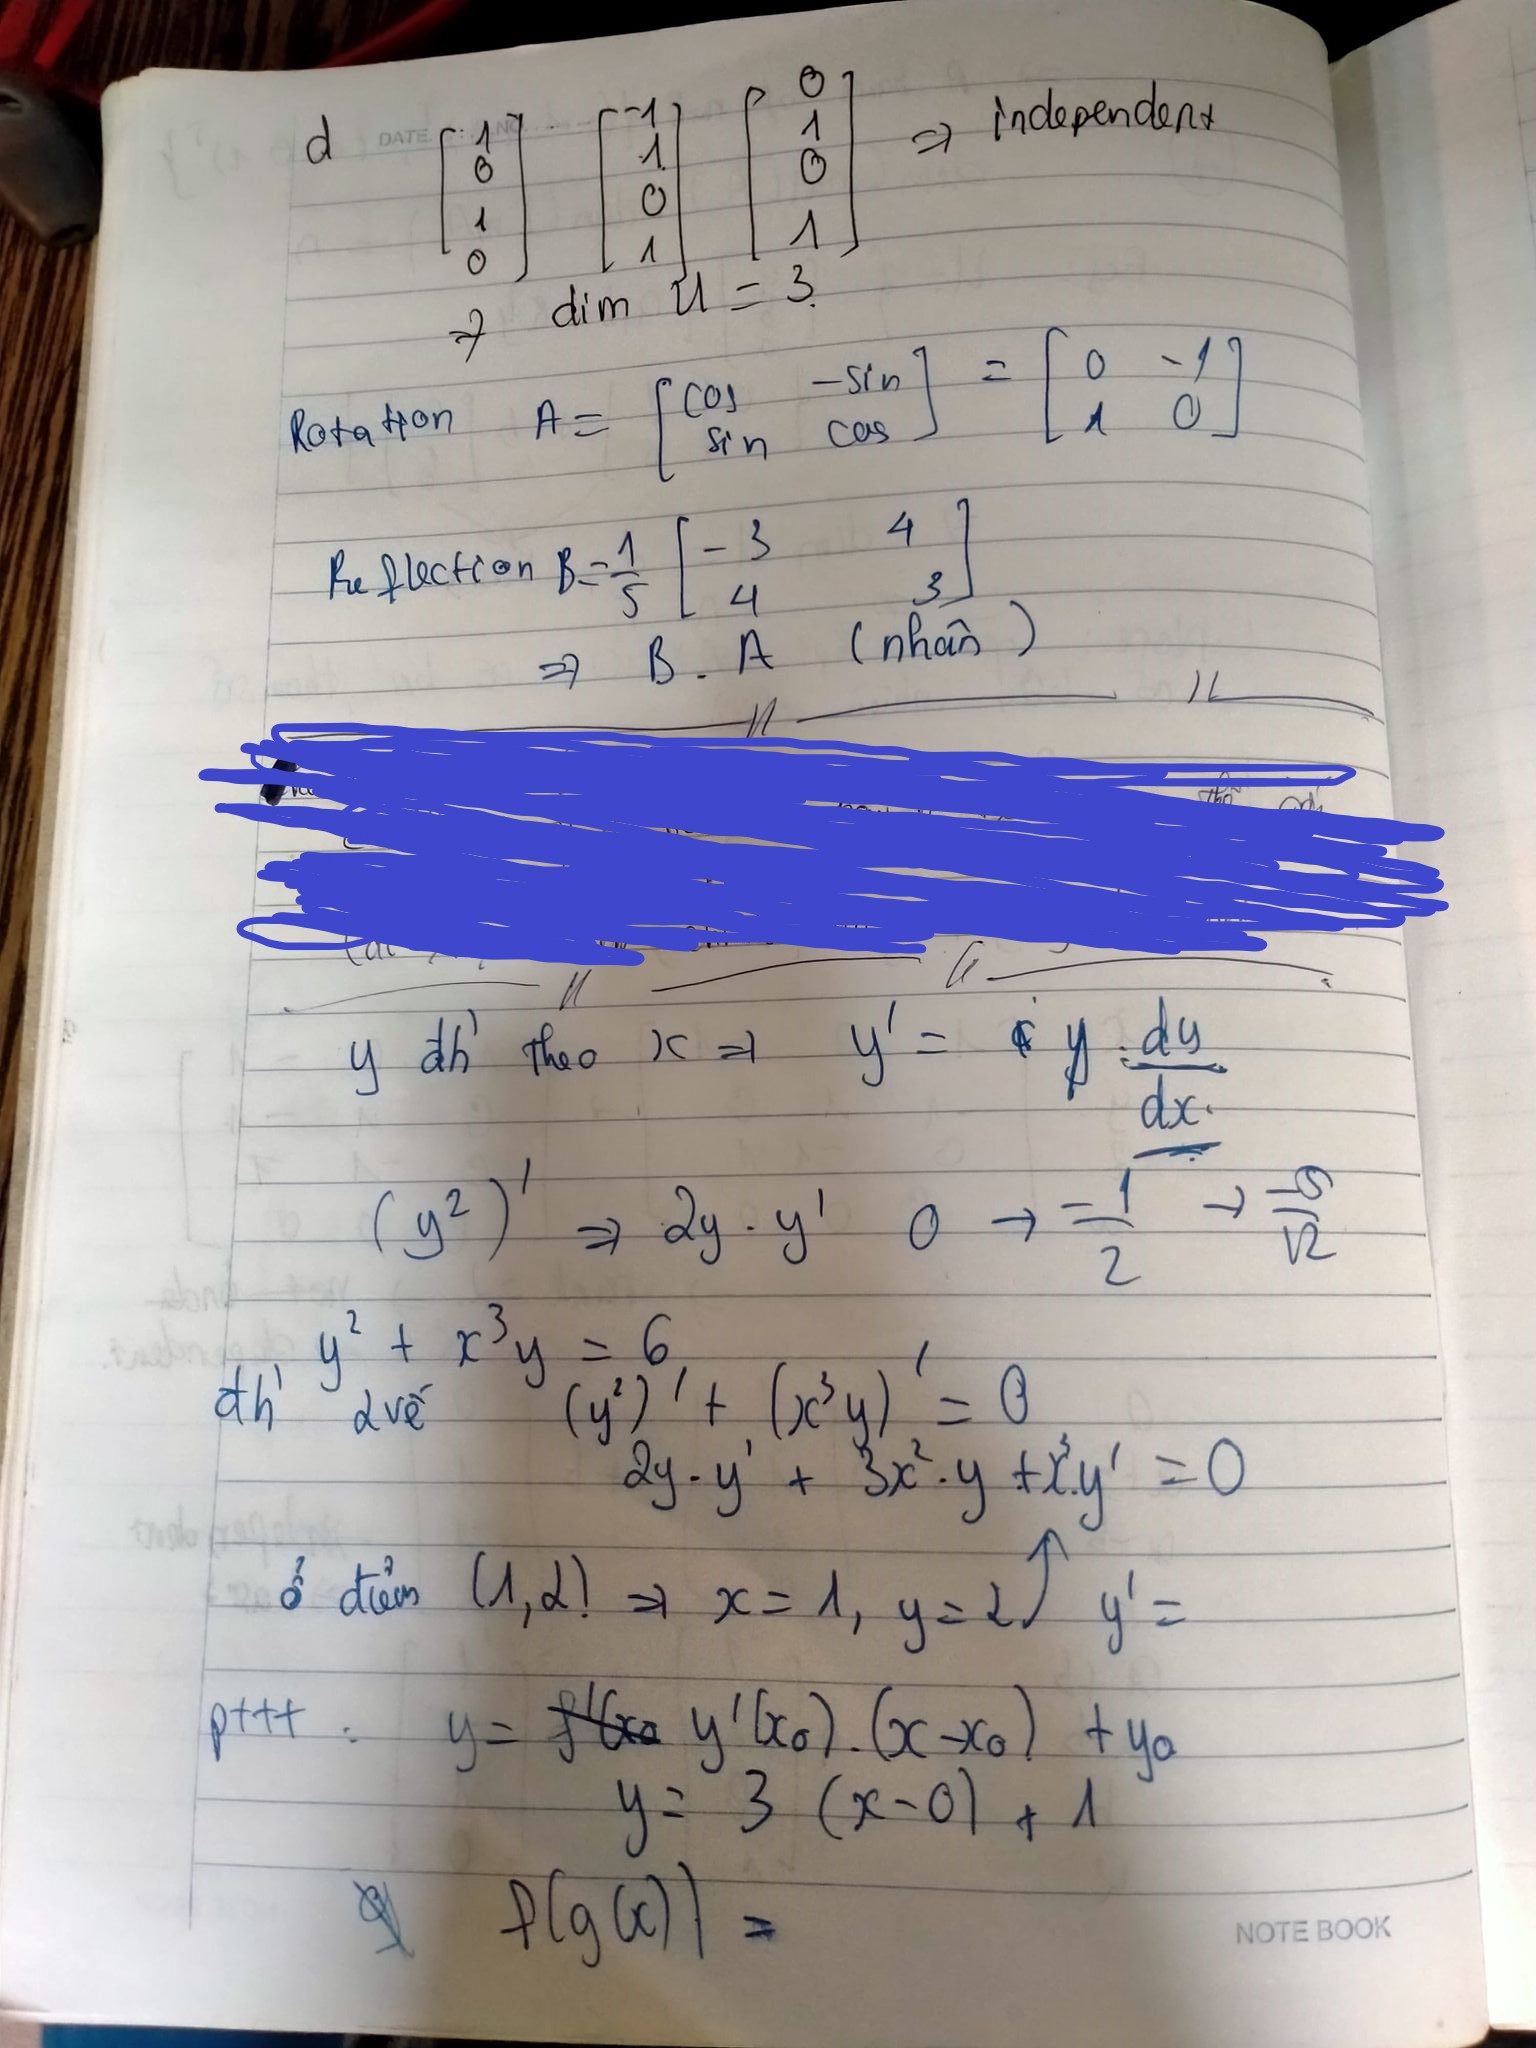 DATE NO.
d [1 0 1 0] [-1 1 0 1] [0 1 0 1] => independent
=> dim U = 3.
Rotation A = [cos -sin
sin cos] = [0 -1
1 0]
Reflection B = 1/5 [-3 4
4 3]
=> B . A (nhân)
y đh' theo x => y' = y . dy/dx
(y²)' => 2y . y' 0 → -1/2 →
y² + x³y = 6
đh' 2 vế (y²)' + (x³y)' = 0
2y . y' + 3x² . y + x³.y' = 0
ở điểm (1,2) => x = 1, y = 2 ↑ y' =
pttt : y = y'(x₀) . (x - x₀) + y₀
y = 3 (x - 0) + 1
f(g(x)) =
NOTE BOOK